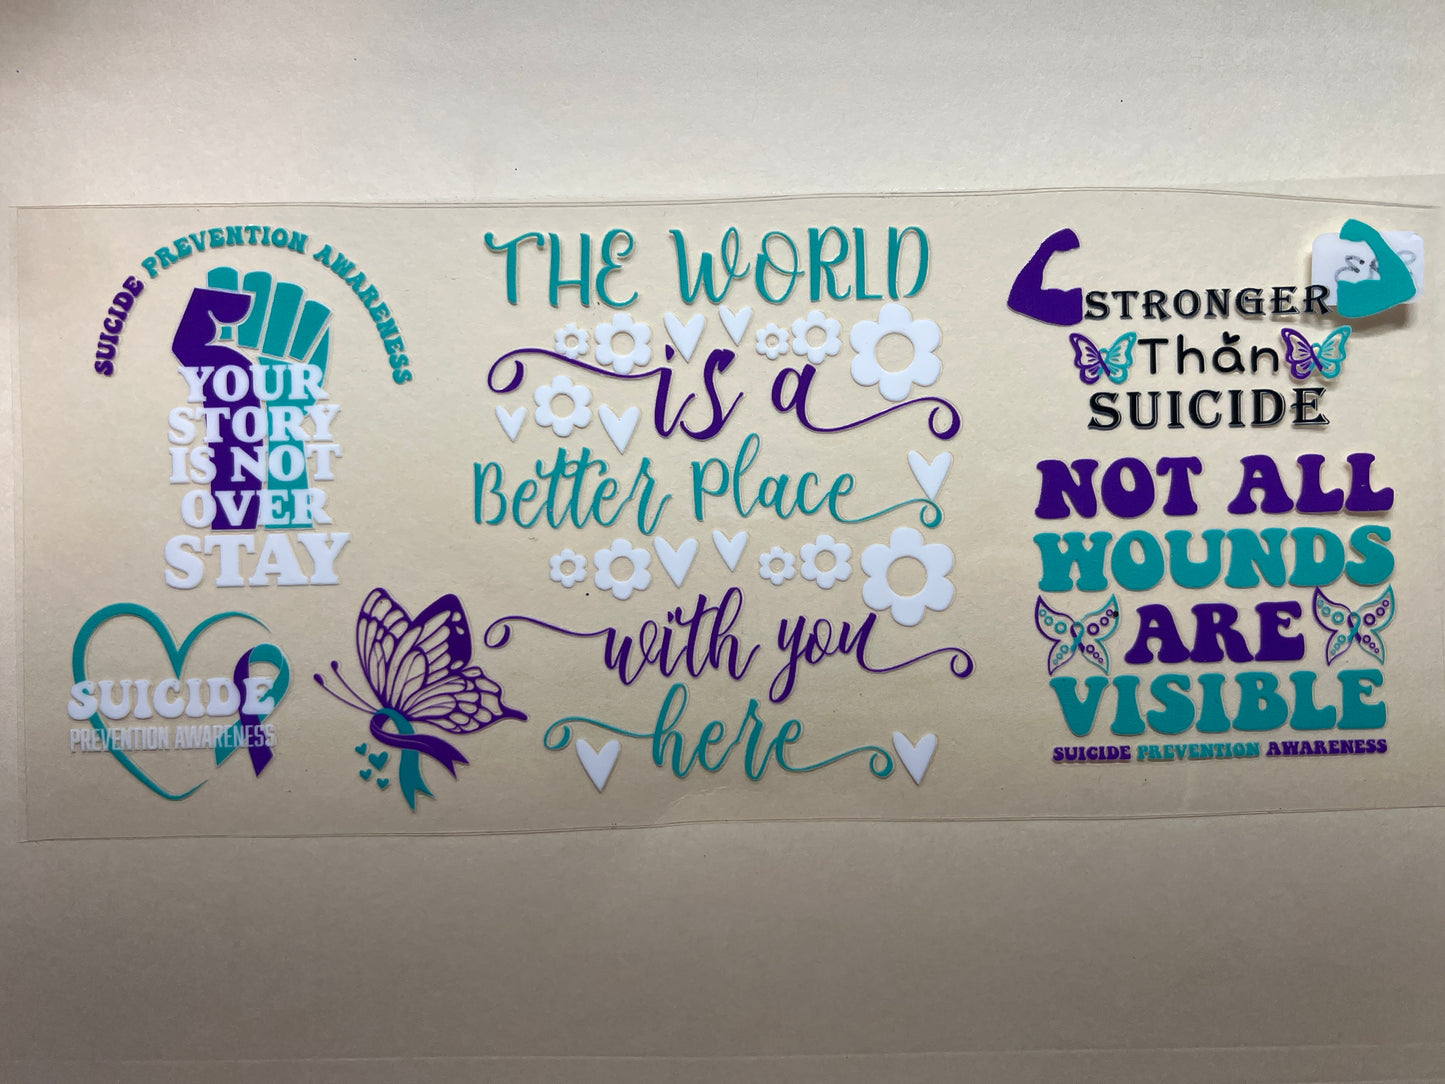 SUICIDE PREVENTION AWARENESS
YOUR
STORY
IS NOT
OVER
STAY
SUICIDE
PREVENTION AWARENESS
THE WORLD
is a
Better Place
with you
here
STRONGER
Than
SUICIDE
NOT ALL
WOUNDS
ARE
VISIBLE
SUICIDE PREVENTION AWARENESS